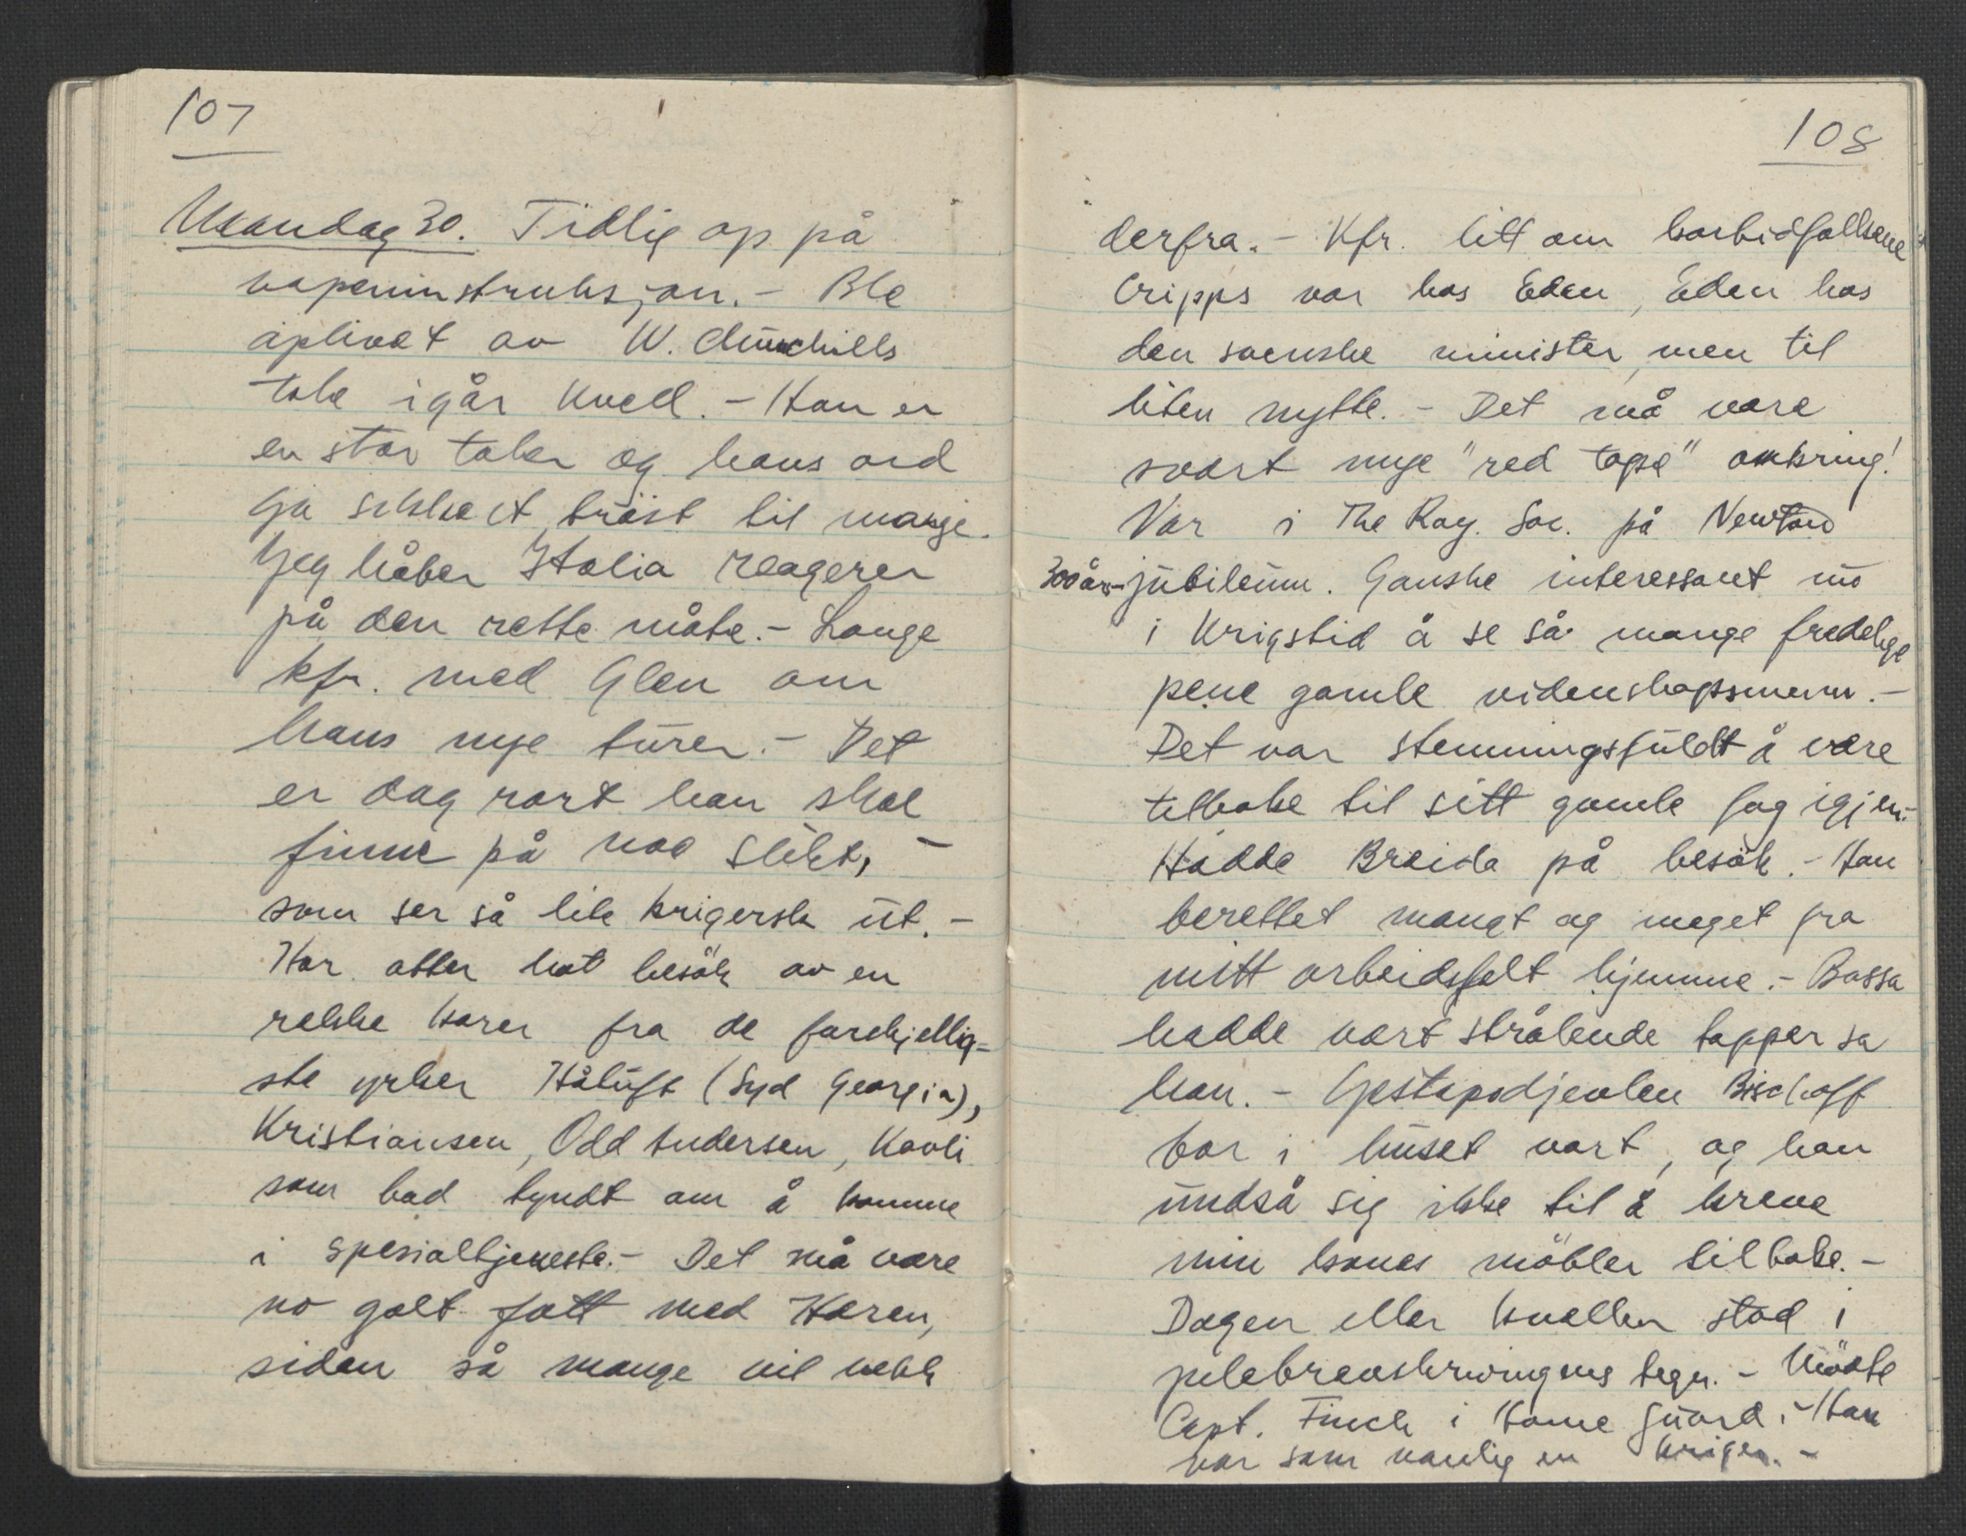 107
Mandag 30. Tidlig op på
vapeninstruksjon. - Ble
oplivet av W. Churchills
tale igår kveld. - Han er
en stor taler og hans ord
ga sikkert tröist til mange.
Jeg håber Italia reagerer
på den rette måte. - Lange
kfr. med Glen om
hans nye turer. - Det
er dog rart han skal
finne på noe slikt, -
som ser så lite krigersk ut. -
Har atter hat besök av en
rekke karer fra de forskjellig-
ste yrker Håluft (Syd Georgia),
Kristiansen, Odd Andersen, Kavli
som bad tyndt om å komme
i spesialtjeneste. - Det må være
no galt fatt med Hæren,
siden så mange vil vekk
108
derfra. - Kfr. litt om karbidfallsene
Cripps var hos Eden, Eden hos
den svenske minister, men til
liten nytte. - Det må være
svært mye "red tape" omkring!
Var i The Roy. Soc. på Newton
300 års-jubileum. Ganske interessant no
i krigstid å se så mange fredelige
pene gamle videnskapsmenn. -
Det var stemningsfuldt å være
tilbake til sitt gamle fag igjen. -
Hadde Breida på besök. - Han
berettet mangt og meget fra
mitt arbeidsfelt hjemme. - Bassa
hadde vært strålende tapper sa
han. - Gestapodjevlen Bischoff
bor i huset vart, og han
undså sig ikke til å kreve
min kones möbler tilbake. -
Dagen eller kvellen stod i
pilebrevskrivingens tegn. - Mödte
Capt. Finch i Home Guard. - Han
var som vanlig en kriger. -